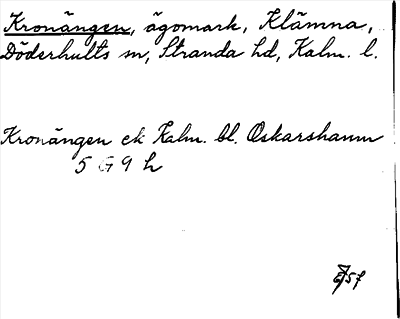 Kronängen, ägomark, Klämna,
Döderhults sn, Stranda hd, Kalm. l.
Kronängen ek Kalm. bl. Oskarshamn
5 G 9 h